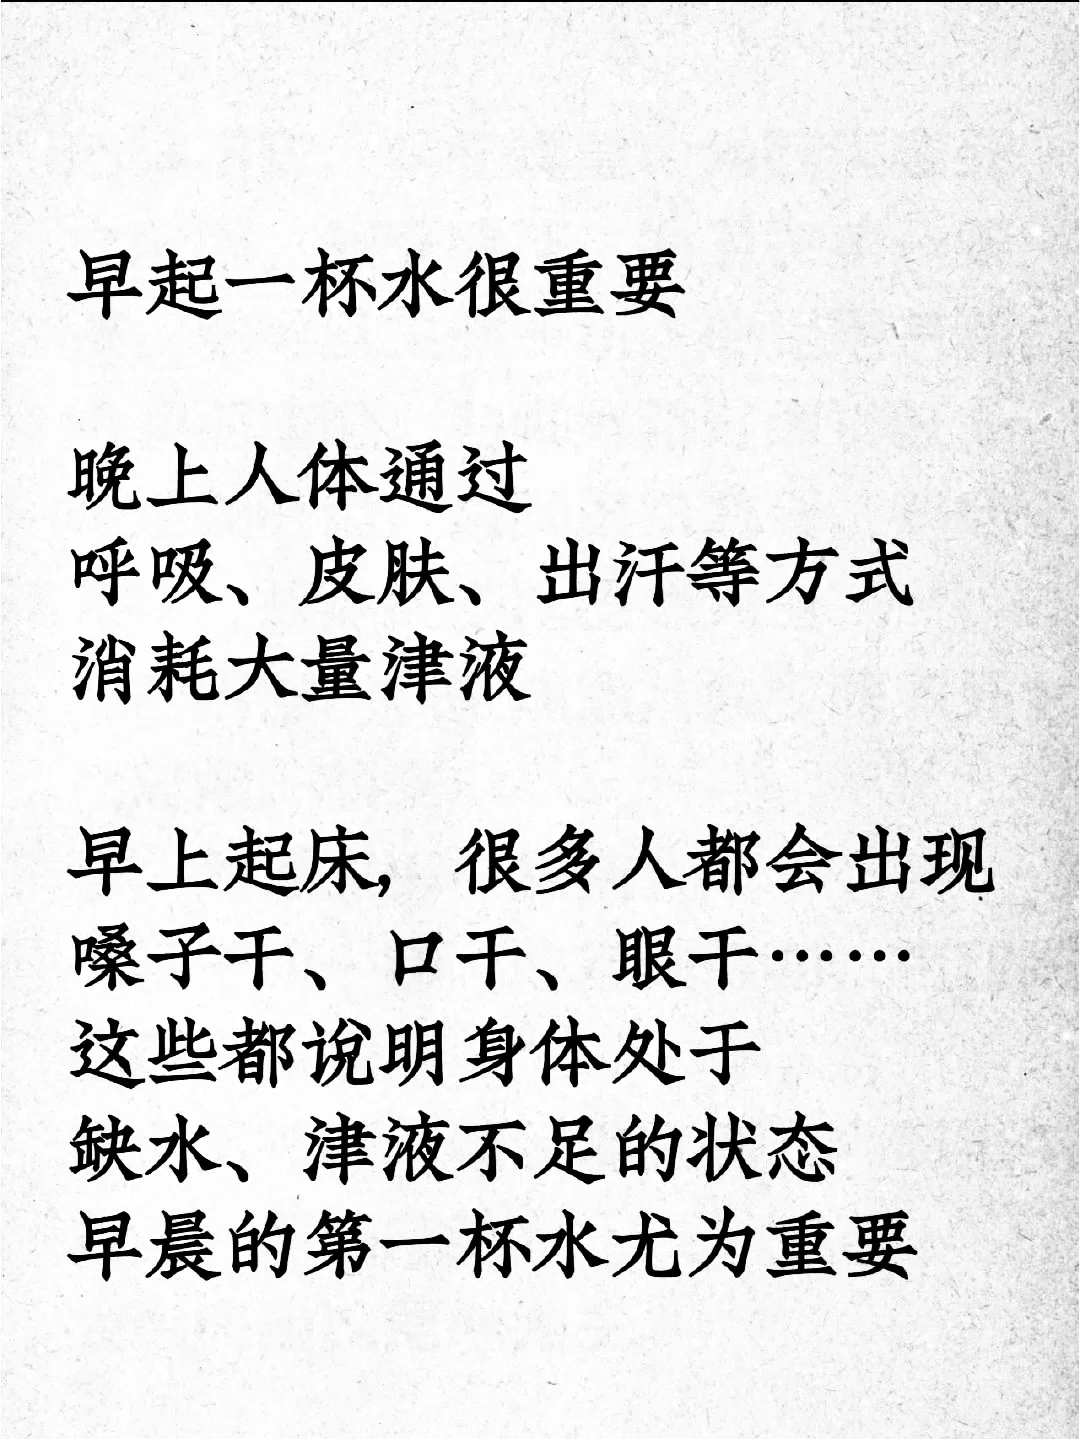 早起一杯水很重要
晚上人体通过
呼吸、皮肤、出汗等方式
消耗大量津液
早上起床，很多人都会出现
嗓子干、口干、眼干……
这些都说明身体处于
缺水、津液不足的状态
早晨的第一杯水尤为重要